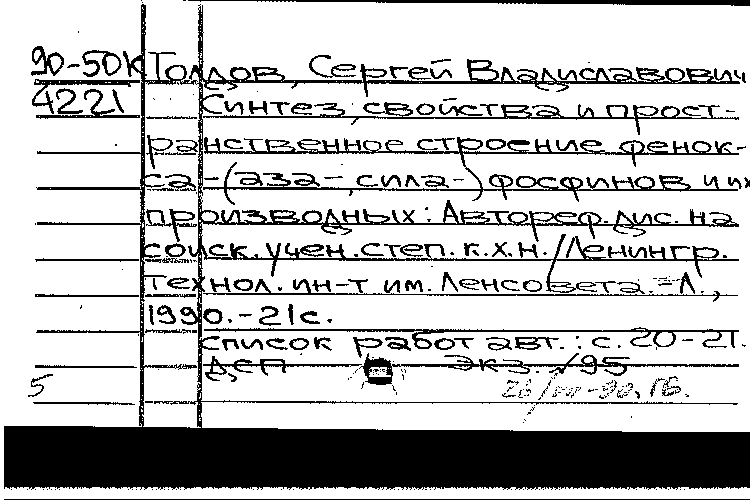 90-50к Толдов, Сергей Владиславович
4221 Синтез, свойства и прост-
ранственное строение фенок-
са-(аза-, сила-) фосфинов и их
производных: Автореф. дис. на
соиск. учен. степ. к.х.н. / Ленингр.
технол. ин-т им. Ленсовета. - Л.,
1990. - 21с.
список работ авт.: с. 20-21.
ДСП Экз. 95
5 90. ГБ.